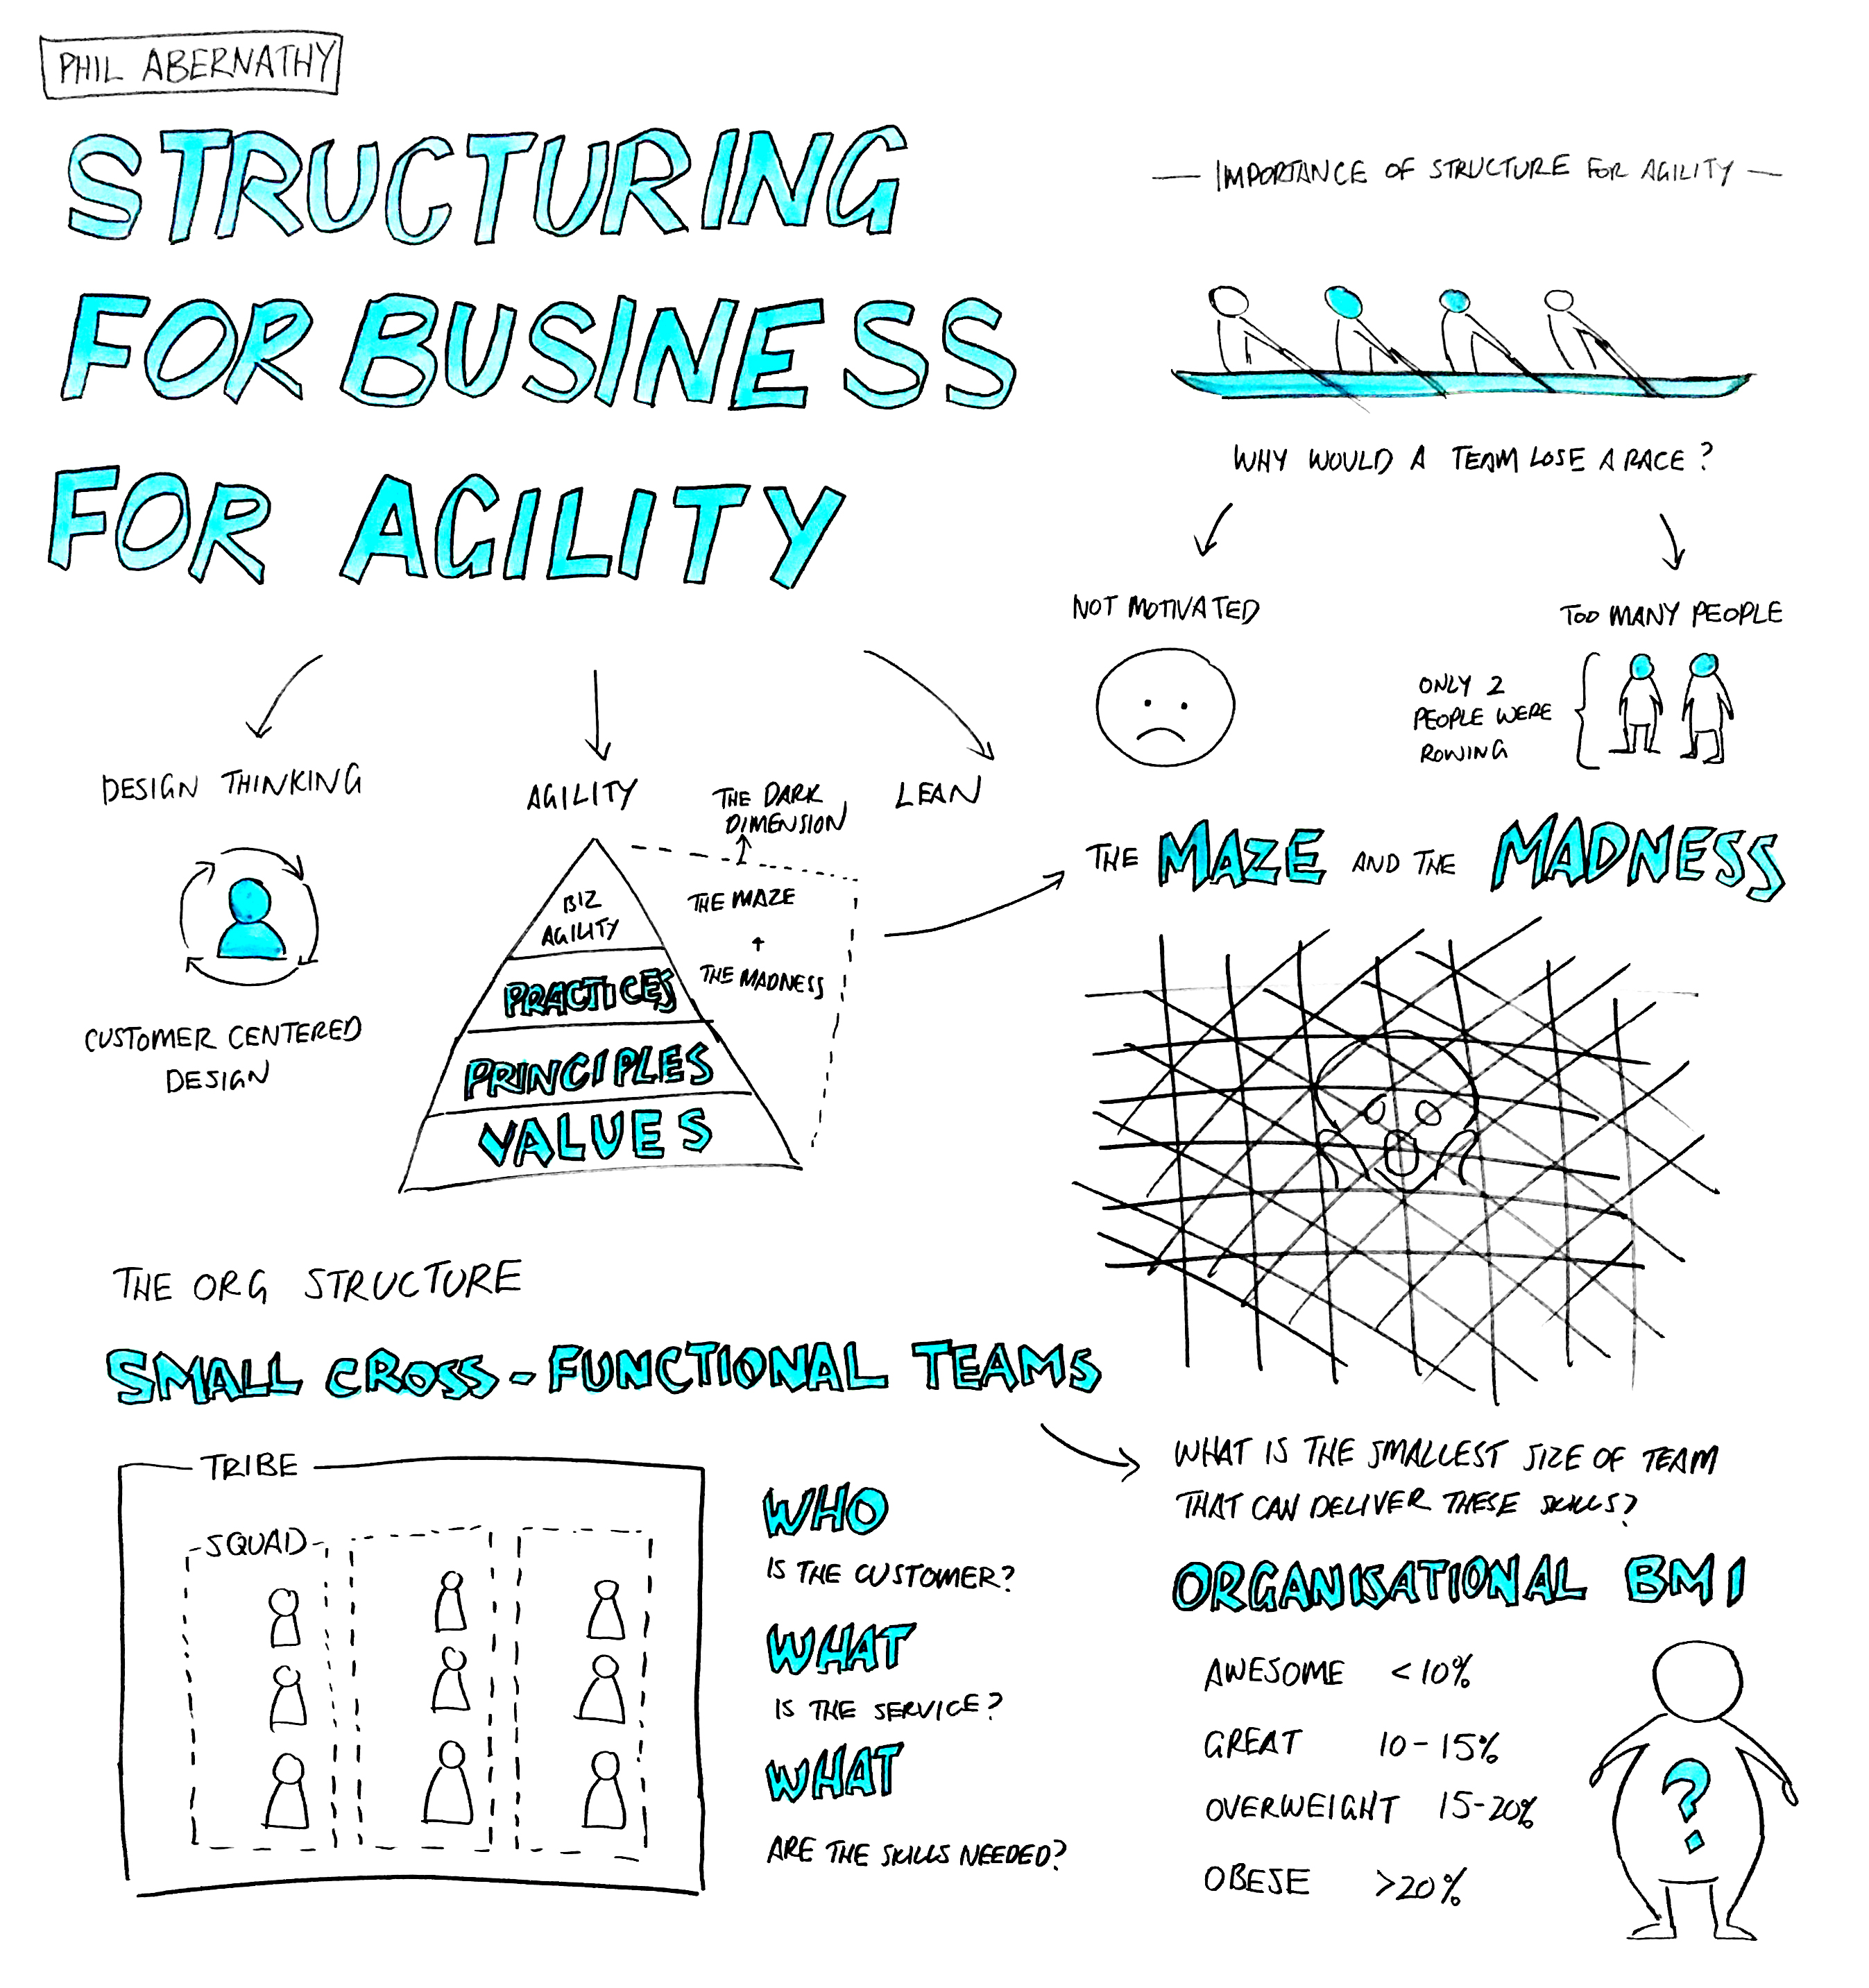 PHIL ABERNATHY
STRUCTURING
FOR BUSINESS
FOR AGILITY
DESIGN THINKING
CUSTOMER CENTERED
DESIGN
AGILITY
BIZ
AGILITY
PRACTICES
PRINCIPLES
VALUES
THE DARK
DIMENSION
THE MAZE
+
THE MADNESS
LEAN
— IMPORTANCE OF STRUCTURE FOR AGILITY —
WHY WOULD A TEAM LOSE A RACE?
NOT MOTIVATED
TOO MANY PEOPLE
ONLY 2
PEOPLE WERE
ROWING
THE MAZE AND THE MADNESS
THE ORG STRUCTURE
SMALL CROSS-FUNCTIONAL TEAMS
TRIBE
SQUAD
WHO
IS THE CUSTOMER?
WHAT
IS THE SERVICE?
WHAT
ARE THE SKILLS NEEDED?
WHAT IS THE SMALLEST SIZE OF TEAM
THAT CAN DELIVER THESE SKILLS?
ORGANISATIONAL BMI
AWESOME <10%
GREAT 10-15%
OVERWEIGHT 15-20%
OBESE >20%
?